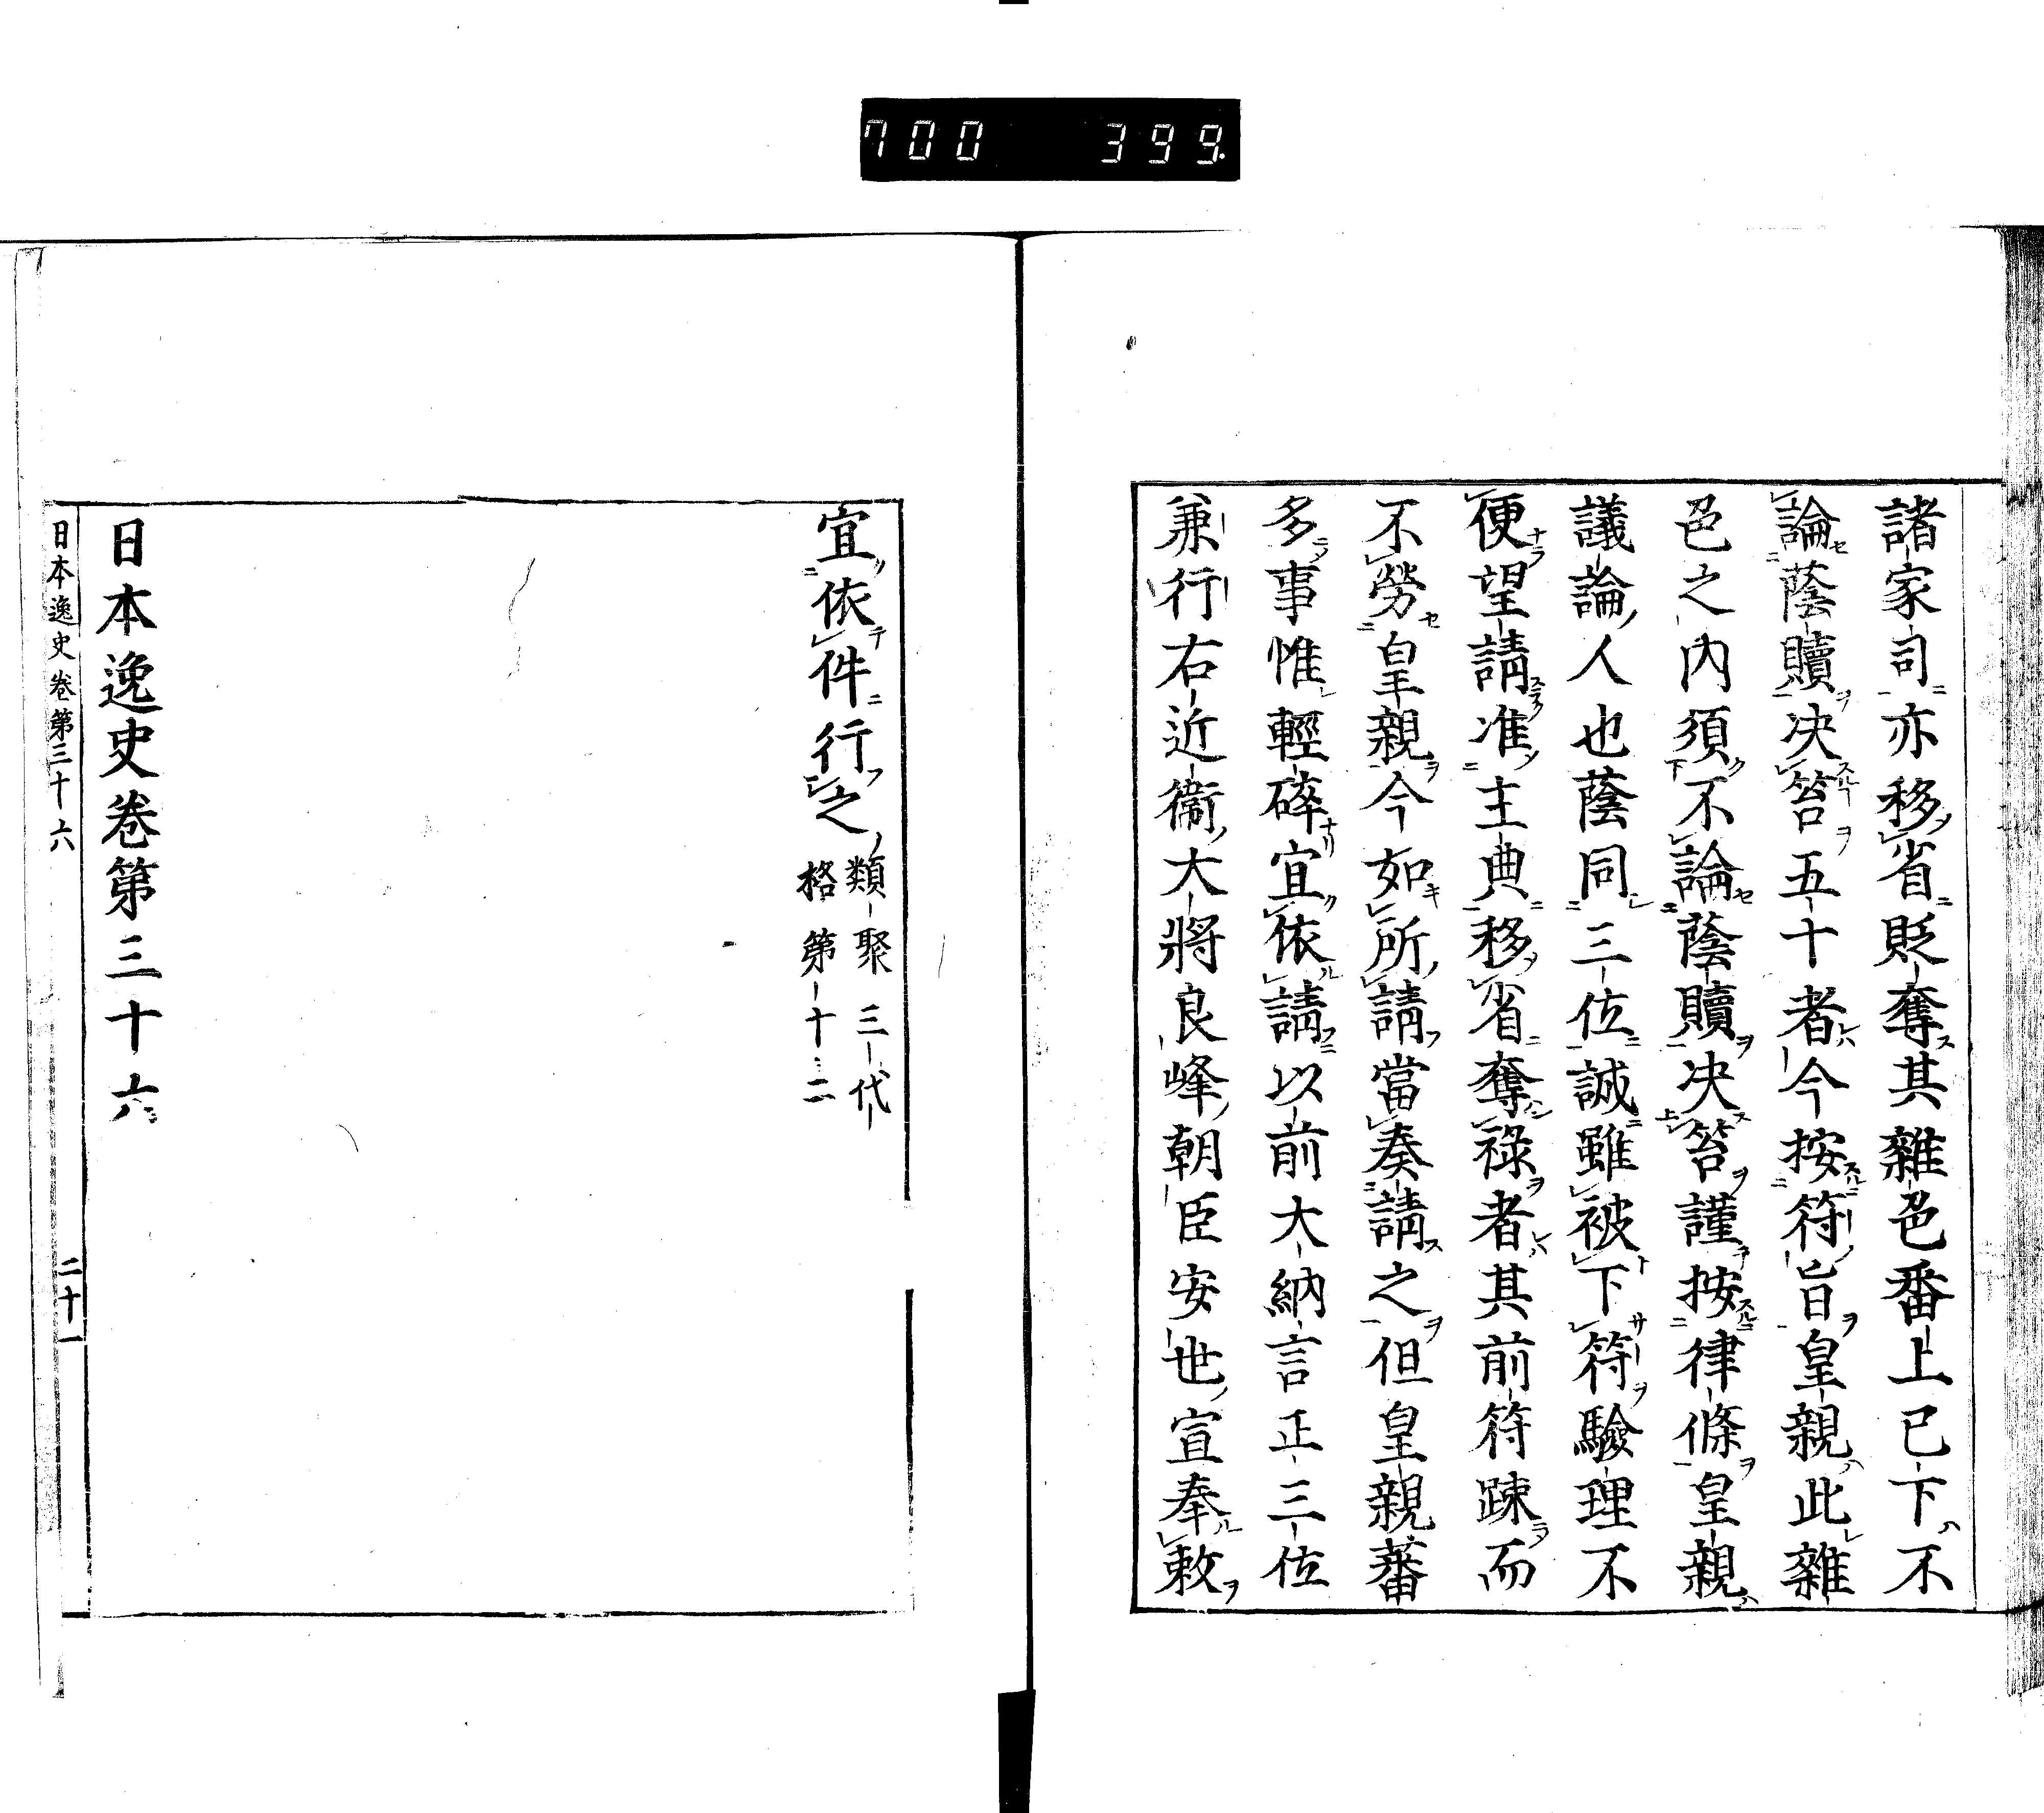 700 399.
諸家司亦移省貶奪其雜色番上已下不
論蔭贖決笞五十者今按符旨皇親此雜
色之內須不論蔭贖決笞謹按律條皇親
議論人也蔭同三位誠雖被下符驗理不
便望請准主典移省奪祿者其前符疎而
不勞皇親今如所請當奏請之但皇親蕃
多事惟輕碎宜依請以前大納言正三位
兼行右近衞大將良峰朝臣安世宣奉敕
宜依件行之類聚三代
格第十二
日本逸史卷第三十六
日本逸史卷第三十六 二十一